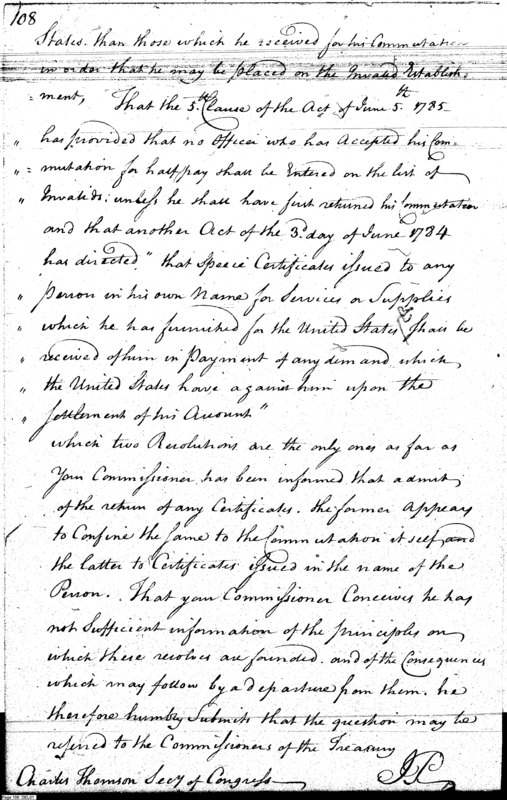 108
States. than those which he received for his Commutation
in order that he may be placed on the Invalid Establish-
=ment, That the 5.th Clause of the Act of June 5.th 1785
" has provided that no Officer who has Accepted his Com-
"=mutation for halfpay shall be Entered on the list of
" Invalids: unless he shall have first returned his Commutation
and that another Act of the 3.d day of June 1784
has directed" that Specie Certificates issued to any
" Person in his own Name for Services or Supplies
" which he has furnished for the United States shall be
" received of him in Payment of any demand which
" the United States have against him upon the
" Settlement of his Account"
which two Resolutions are the only ones as far as
Your Commissioner has been informed that admit
of the return of any Certificates. the former appears
to Confine the same to the Commutation it self and
the latter to Certificates issued in the name of the
Person. That your Commissioner Conceives he has
not Sufficient information of the principles on
which these resolves are founded. and of the Consequences
which may follow by a departure from them. he
therefore humbly Submits that the question may be
referred to the Commissioners of the Treasury
Charles Thomson Secy of Congress JP